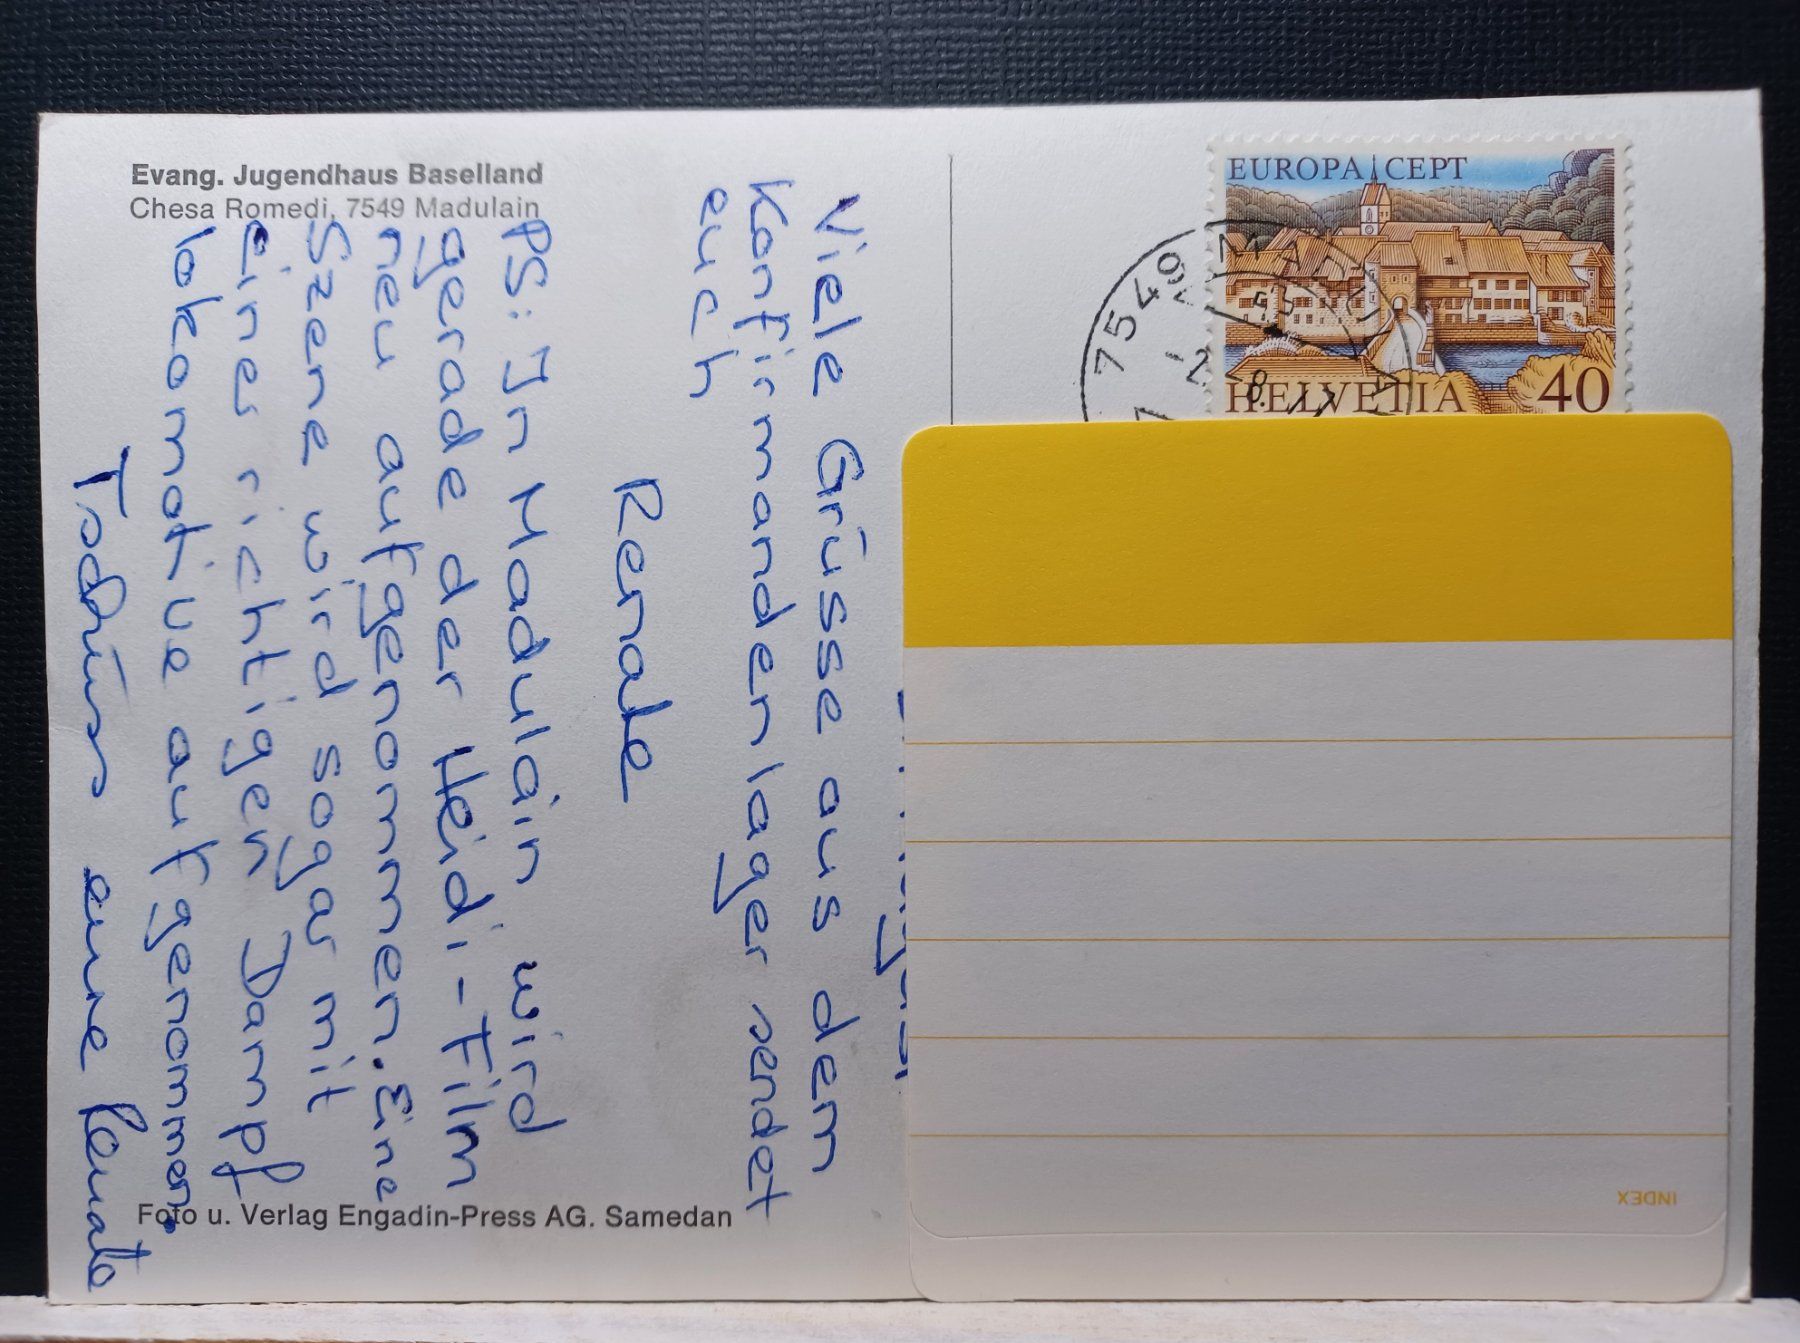 Evang. Jugendhaus Baselland
Chesa Romedi, 7549 Madulain
Viele Grüsse aus dem
Konfirmandenlager sendet
euch
Renate
PS: In Madulain wird
gerade der Heidi-Film
neu aufgenommen. Eine
Szene wird sogar mit
einer richtigen Dampf
lokomotive aufgenommen.
Tschüss eure Renate
Foto u. Verlag Engadin-Press AG. Samedan
EUROPA CEPT
HELVETIA 40
7549
INDEX